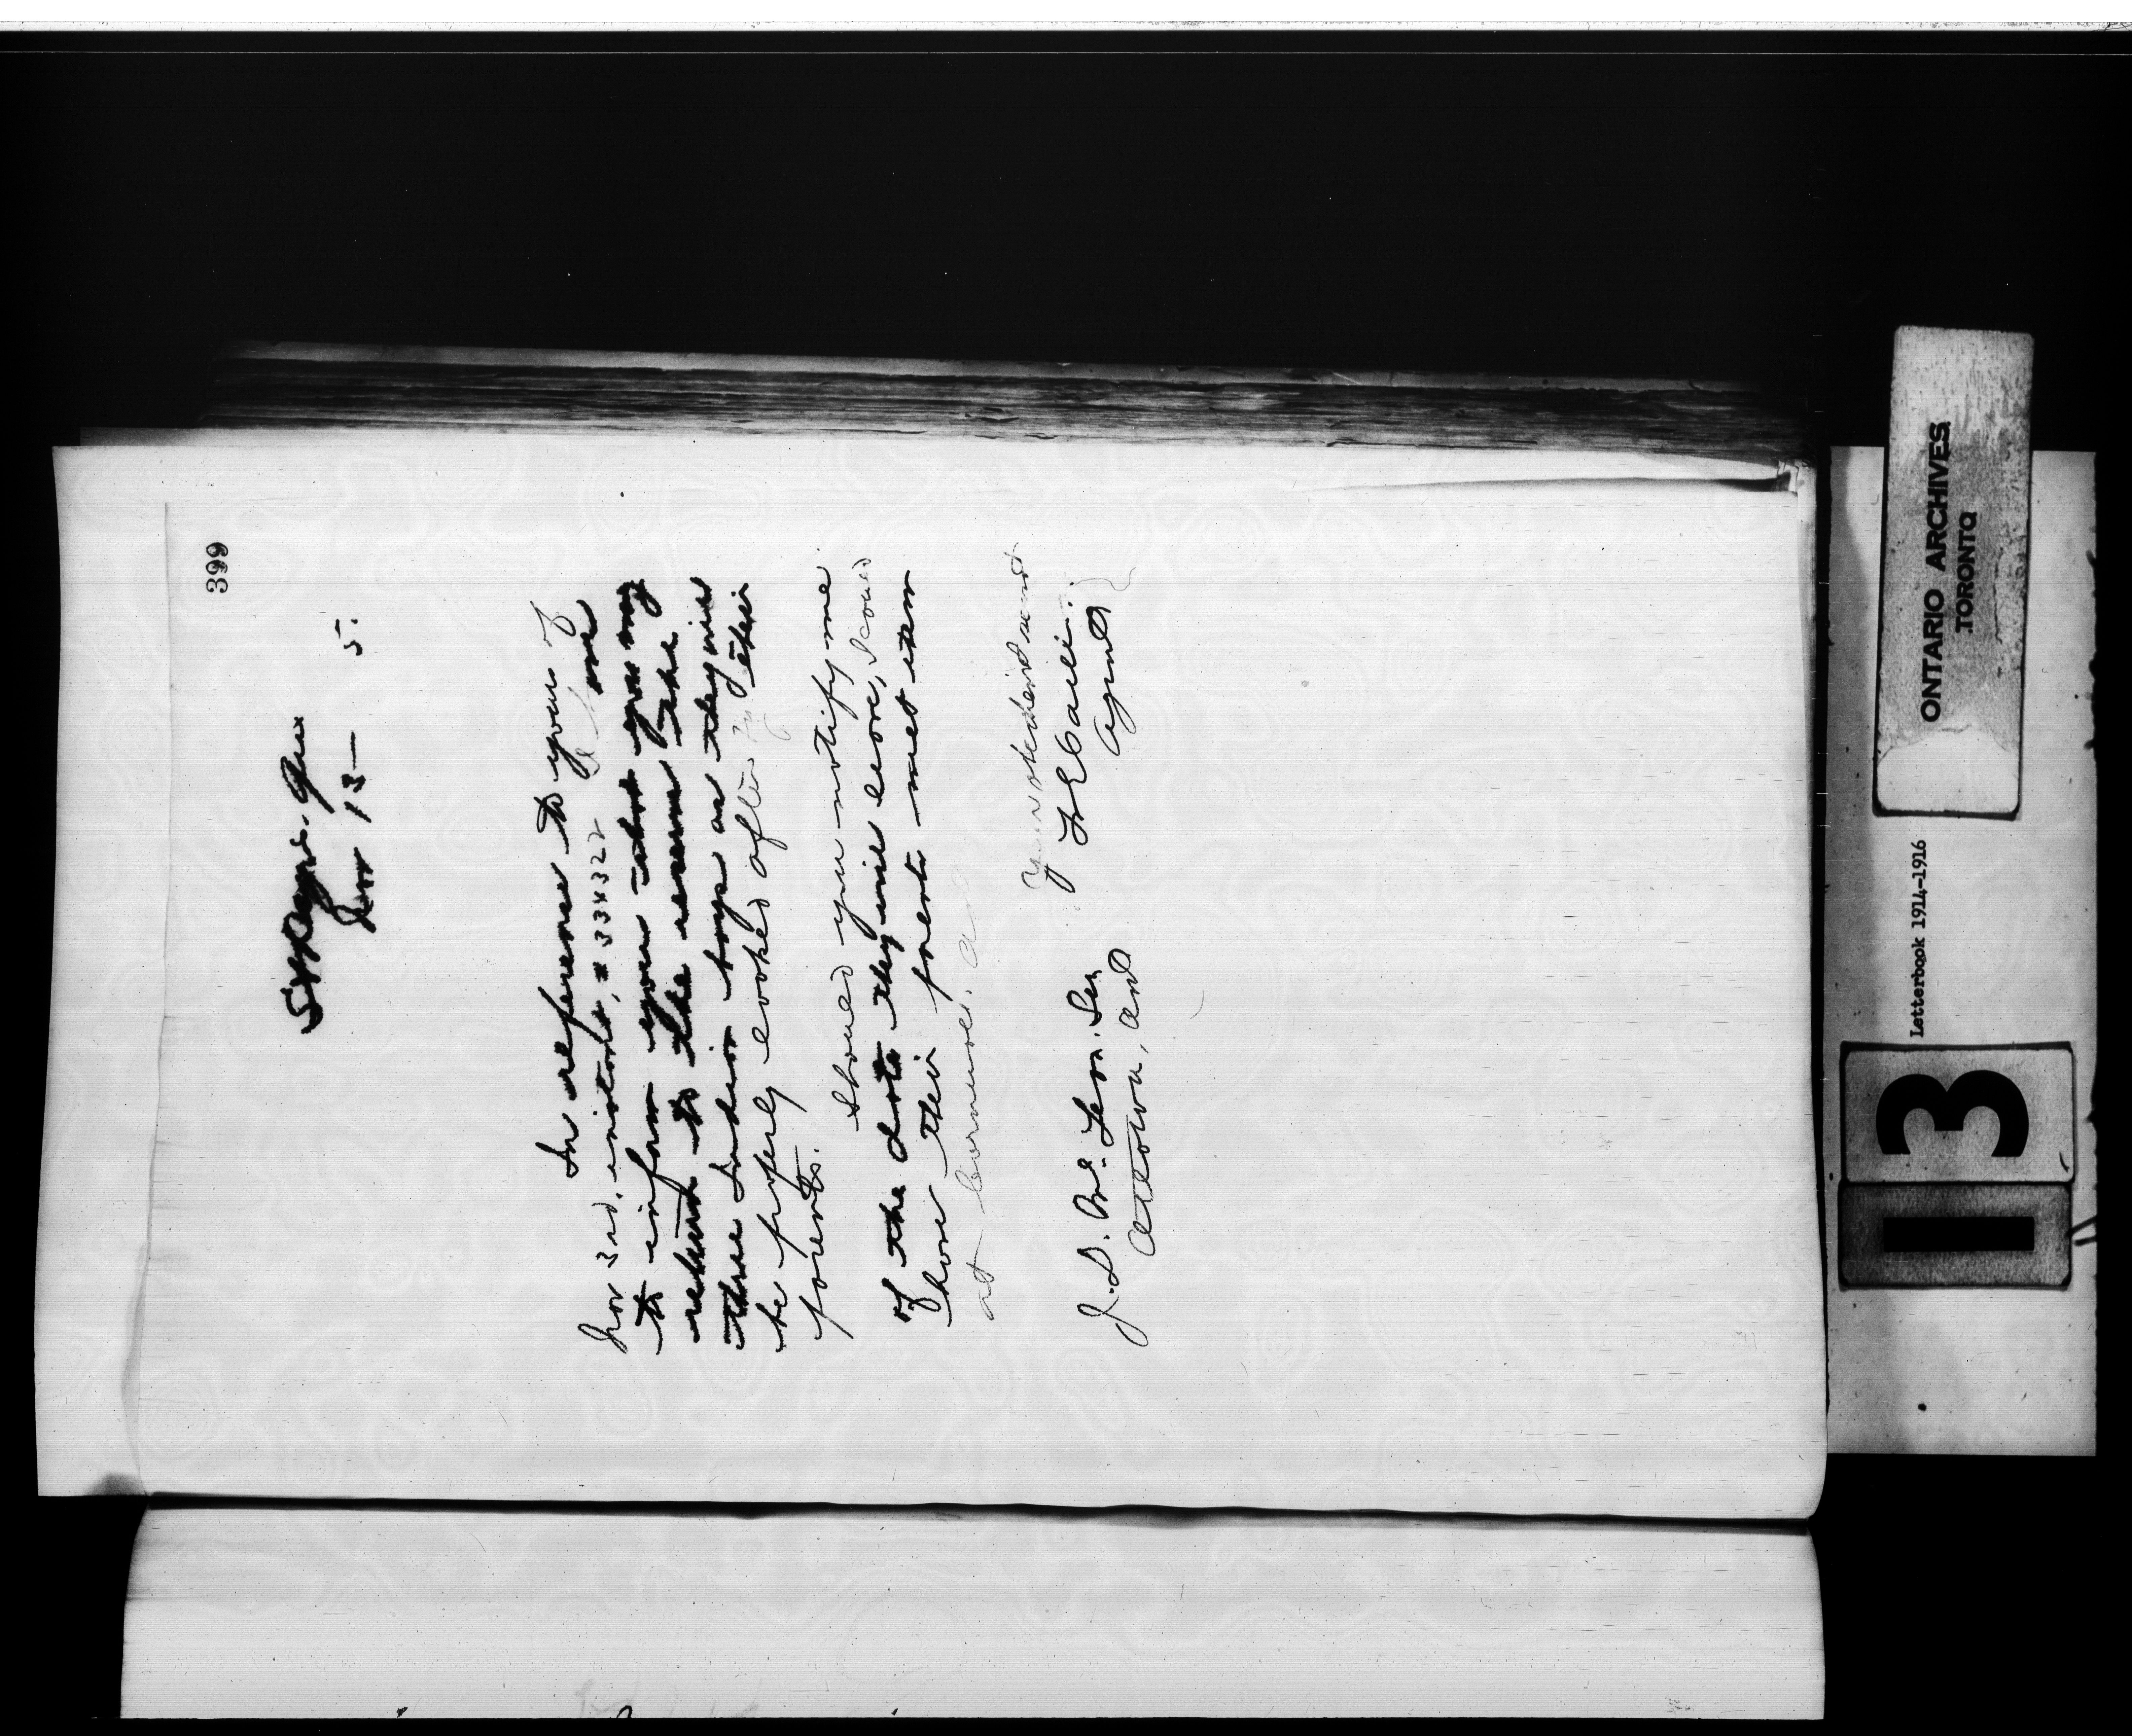 399
St Regis. Que
Nov 13 — 5.
In reference to yours of
Nov 3rd. instant, # 334322
to inform you that you may
return to the reserve the
three Indian boys as they will
be properly looked after by their
parents.
Should you notify me
of the date they will leave, I could
have their parents meet them
at Cornwall.
Your obedient servant
Agent
J. D. McLean. Sec
Ottawa, Ont
ONTARIO ARCHIVES
TORONTO
Letterbook 1914-1916
3